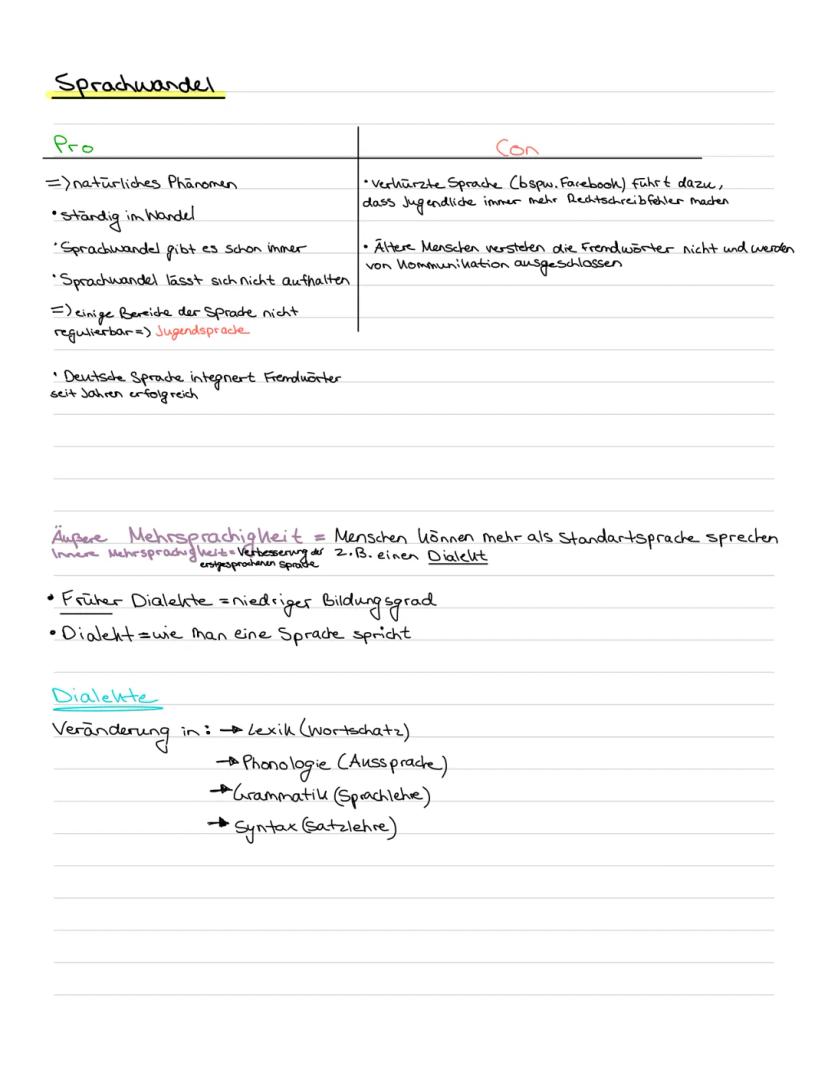 Sprachwandel
Pro
Con
=) natürliches Phänomen
• ständig im Wandel
• Sprachwandel gibt es schon immer
• Sprachwandel lässt sich nicht aufhalten
=) einige Bereiche der Sprache nicht
regulierbar =) Jugendsprache
• Deutsche Sprache integriert Fremdwörter
seit Jahren erfolgreich
• verkürzte Sprache (bspw. Facebook) führt dazu,
dass Jugendliche immer mehr Rechtschreibfehler machen
• Ältere Menschen verstehen die Fremdwörter nicht und werden
von Kommunikation ausgeschlossen
Äußere Mehrsprachigkeit = Menschen können mehr als Standartsprache sprechen
z.B. einen Dialekt
Innere Mehrsprachigkeit = Verbesserung der
erstgesprochenen Sprache
• Früher Dialekte = niedriger Bildungsgrad
• Dialekt = wie man eine Sprache spricht
Dialekte
Veränderung in: → Lexik (Wortschatz)
→ Phonologie (Aussprache)
→ Grammatik (Sprachlehre)
→ Syntax (Satzlehre)